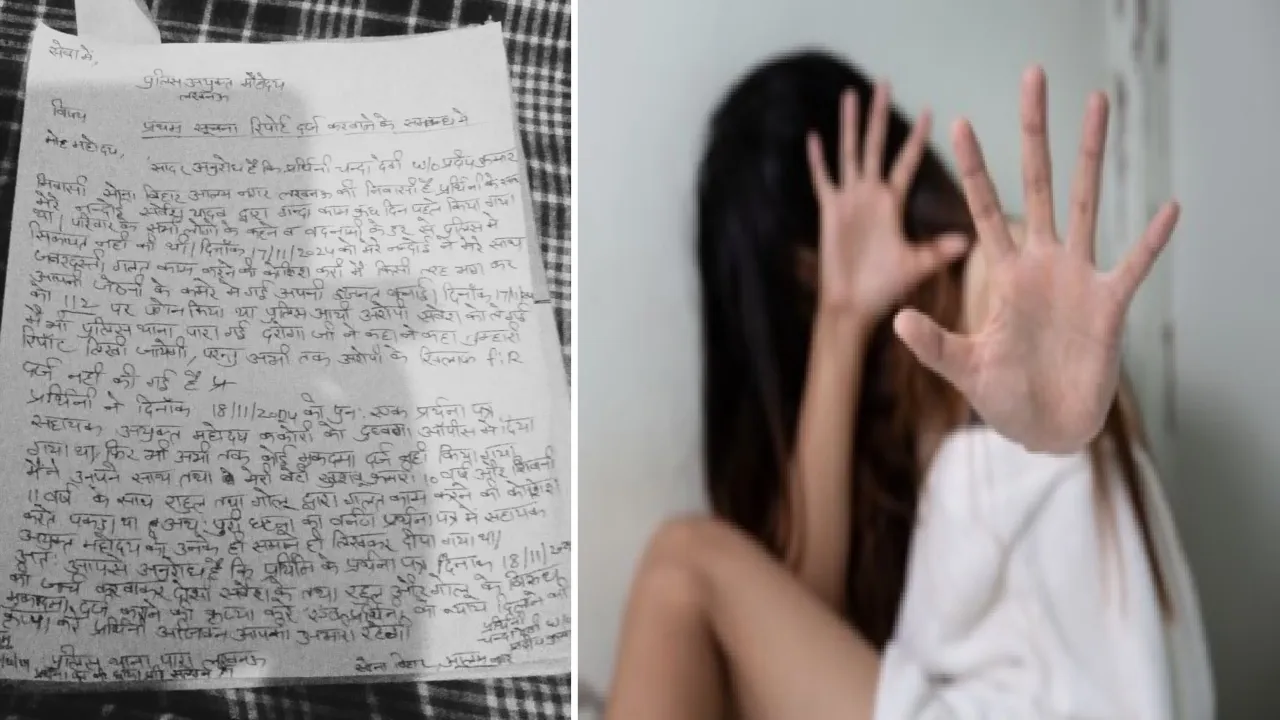 सेवा में,
पुलिस आयुक्त महोदय
लखनऊ
विषय
प्रथम सूचना रिपोर्ट दर्ज करवाने के सम्बन्ध में
महोदय,
सादर अनुरोध है कि प्रार्थिनी चन्दा देवी w/o प्रदीप कुमार
निवासी बिहार आलम नगर लखनऊ की निवासी है प्रार्थिनी के
मेरे नन्दोई यादव द्वारा गन्दा काम कुछ दिन पहले किया गया
था। परिवार के सभी लोगों के कहने व बदनामी के डर से पुलिस में
सिकायत नहीं की थी। दिनाँक 17/11/2024 को मेरे नन्दोई ने मेरे साथ
जबरदस्ती गलत काम करने की कोशिश करी मैं किसी तरह भाग कर
अपनी जेठानी के कमरे में गई अपनी इज्जत बचाई। दिनाँक 17/11/
को 112 पर फोन किया था पुलिस आयी आरोपी को ले गई
मैं भी पुलिस थाना पारा गई दरोगा जी ने कहा तुम्हारी
रिपोर्ट लिखी जायेगी, परन्तु अभी तक आरोपी के खिलाफ
दर्ज नहीं की गई है
प्रार्थिनी ने दिनाँक 18/11/2024 को पुनः एक प्रार्थना पत्र
सहायक आयुक्त महोदय ककोरी को दुबग्गा ऑफीस में दिया
गया था, फिर भी अभी तक कोई मुकदमा दर्ज नहीं किया गया
मैंने अपने साथ तथा मेरी कुमारी 10 वर्ष और
11 वर्ष के साथ राहुल तथा गोलू द्वारा गलत काम करने की कोशिश
करते पकड़ा था अतः पूरी घटना का वर्णन प्रार्थना पत्र में सहायक
आयुक्त महोदय को उनके ही समान ही लिखकर दीया गया था।
अतः आपसे अनुरोध है कि प्रार्थिनी के प्रार्थना पत्र दिनांक 18/11/
की जांच करवाकर दोषी के तथा राहुल और गोलू के विरुद्ध
मुकदमा दर्ज करने की कृपा करे प्रार्थिनी को न्याय दिलाने की
कृपा करे प्रार्थिनी आजिवन आपकी आभारी रहेगी
प्रार्थिनी
पुलिस थाना पारा लखनऊ